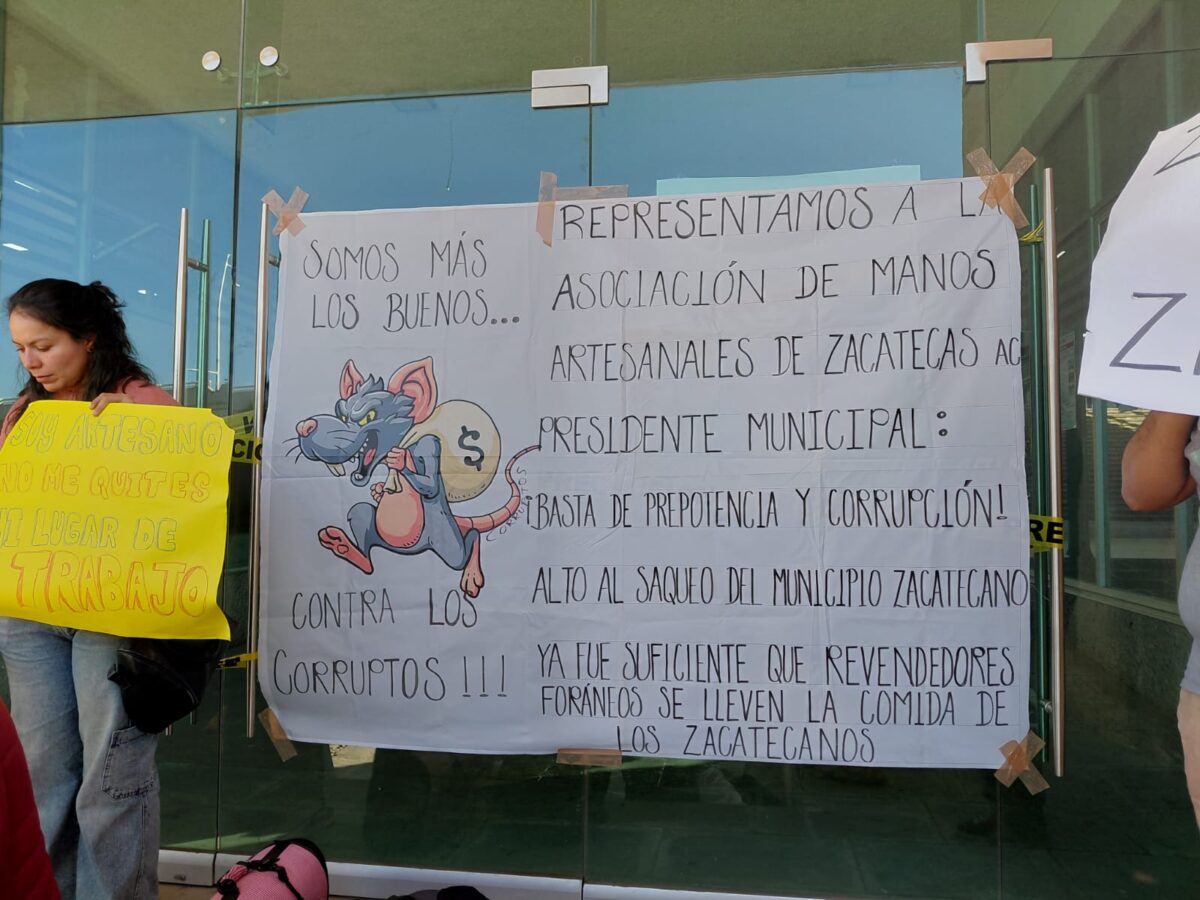 SOMOS MÁS
LOS BUENOS...
$
CORRUPTOS
CONTRA LOS
CORRUPTOS !!!
REPRESENTAMOS A LA
ASOCIACIÓN DE MANOS
ARTESANALES DE ZACATECAS AC
PRESIDENTE MUNICIPAL:
¡BASTA DE PREPOTENCIA Y CORRUPCIÓN!
ALTO AL SAQUEO DEL MUNICIPIO ZACATECANO
YA FUE SUFICIENTE QUE REVENDEDORES
FORÁNEOS SE LLEVEN LA COMIDA DE
LOS ZACATECANOS
SOY ARTESANO
NO ME QUITES
MI LUGAR DE
TRABAJO
RE